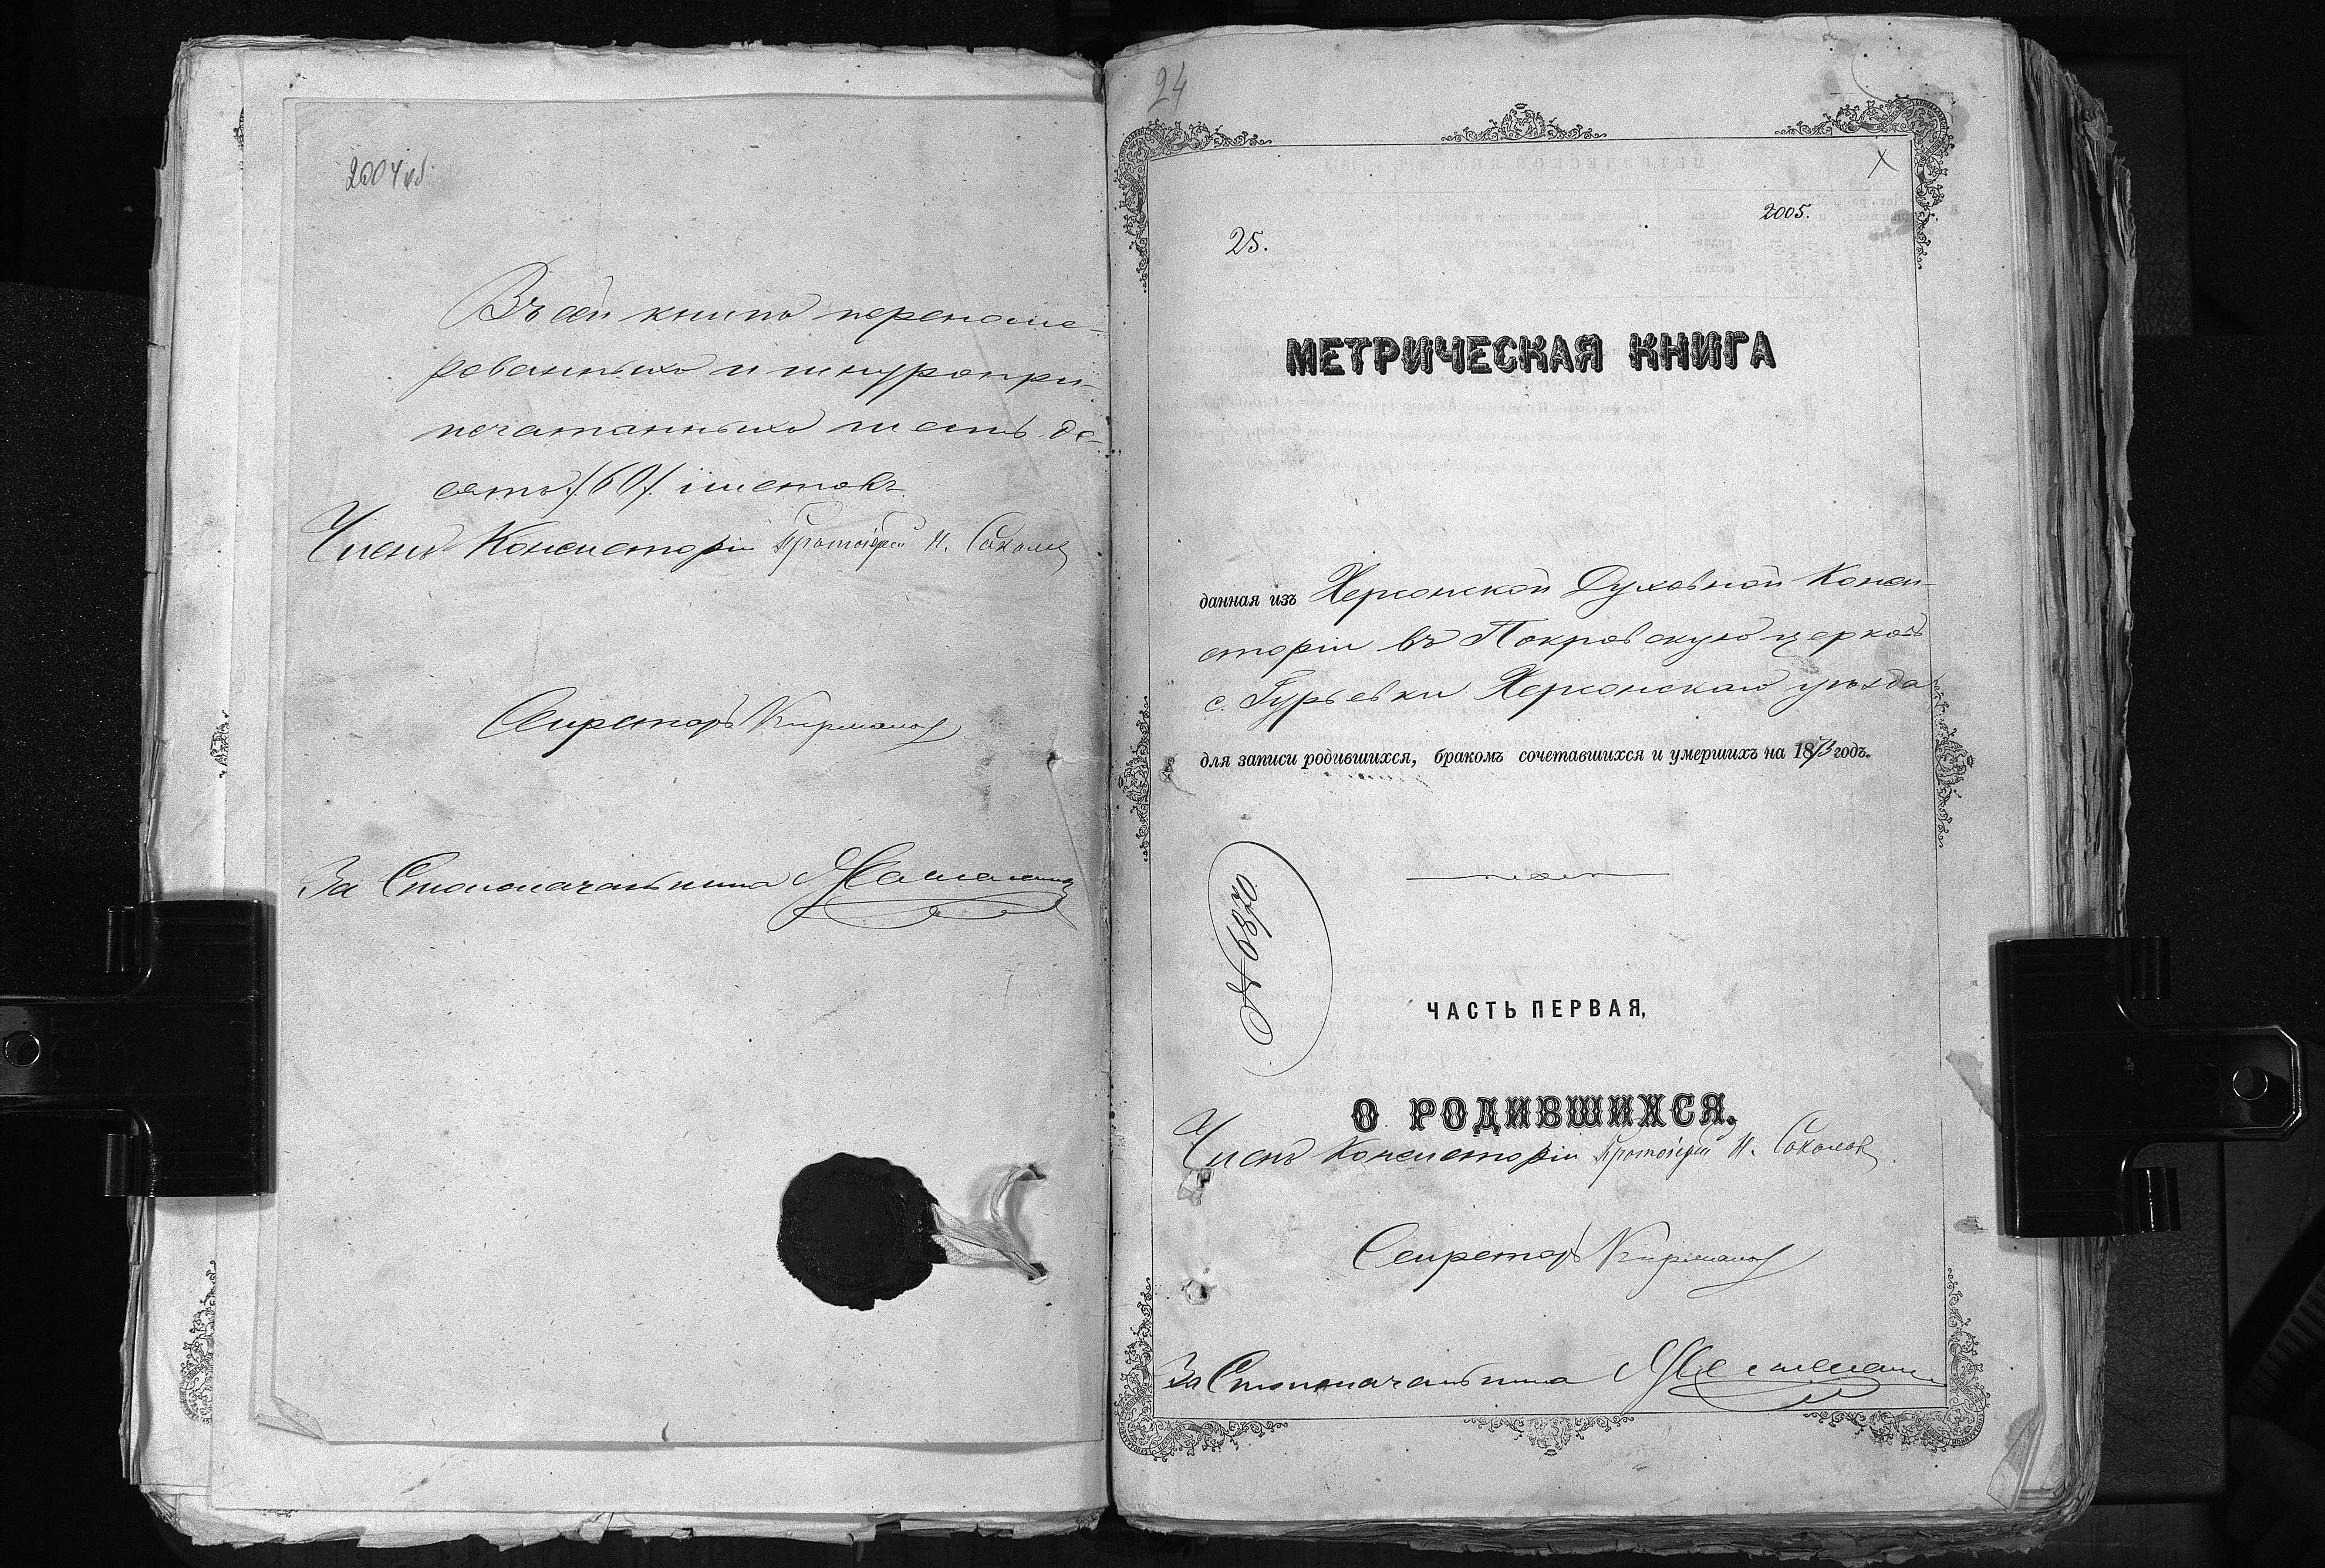 2004 об.
Въ сей книгѣ перенуме-
рованныхъ и шнуропри-
печатанныхъ шесть де-
сятъ /60/ листовъ.
Членъ Консисторіи Протоіерей Н. Соколовъ
Секретарь
За Столоначальника
24
X
2005.
25.
МЕТРИЧЕСКАЯ КНИГА
данная изъ Херсонской Духовной Конси-
сторіи въ Покровскую церковь
с. Гурьевки Херсонскаго уѣзда
для записи родившихся, бракомъ сочетавшихся и умершихъ на 1873 годъ.
№ 6870
ЧАСТЬ ПЕРВАЯ,
О РОДИВШИХСЯ.
Членъ Консисторіи Протоіерей Н. Соколовъ
Секретарь
За Столоначальника